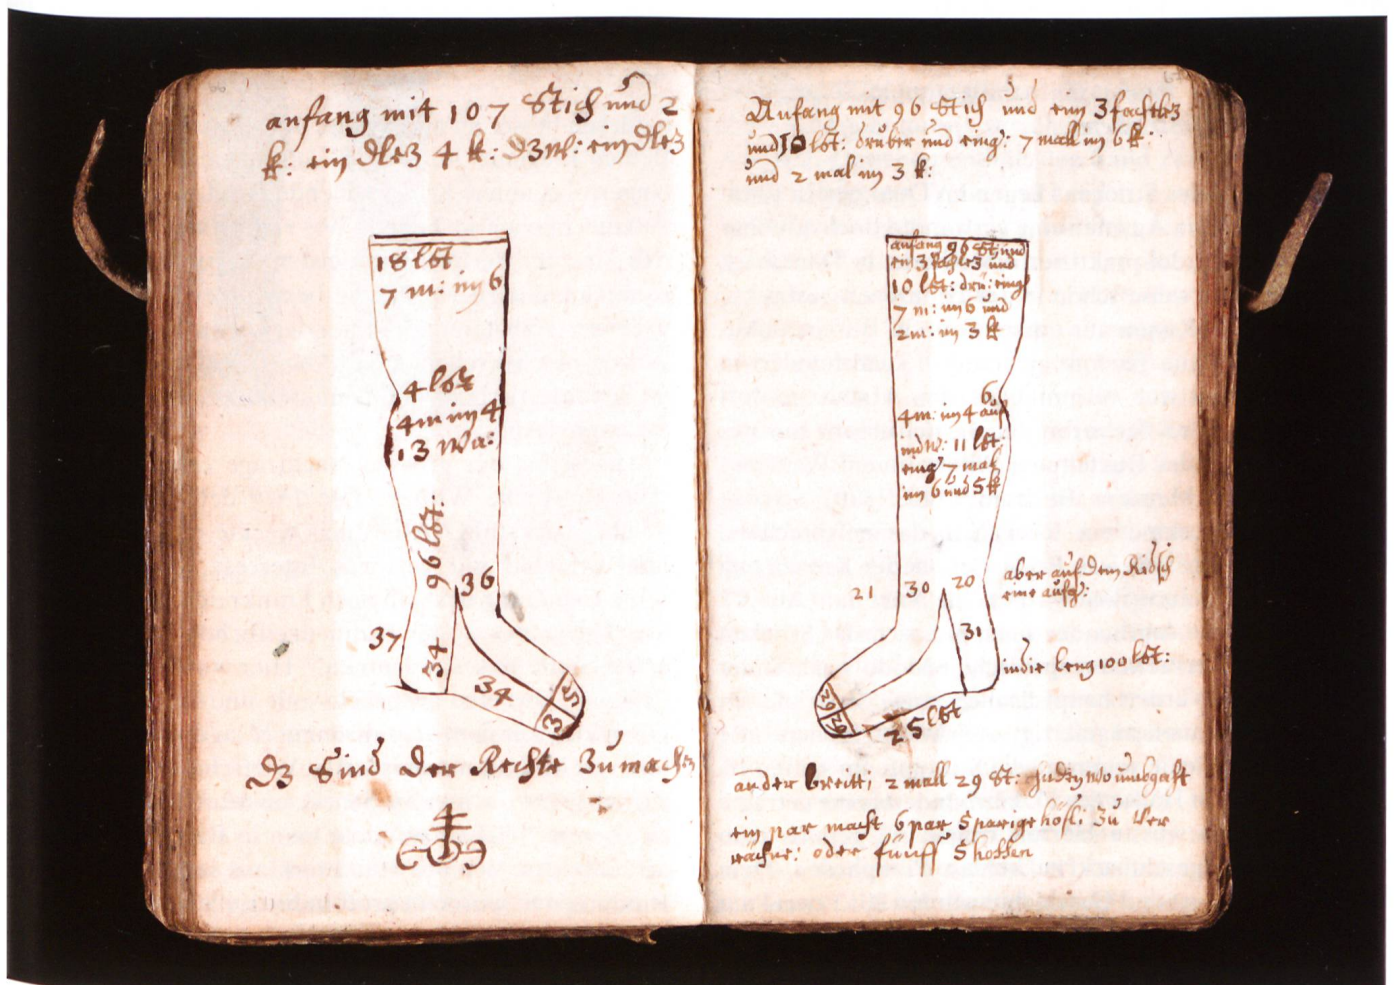 anfang mit 107 Stich und 2
k: ein dlez 4 k: dzw: ein dlez
18 lđt
7 m: im 6
4 lđz
4m im 4
13 Wa:
96 lđt:
36
37
34
34
35
dz Sind der Rechte Zu mache
4
Anfang mit 96 Stich und ein 3fachlez
und 10 lđt: druber und eing: 7 mall im 6 k:
und 2 mal im 3 k:
anfang 96 St und
ein 3fachlez und
10 lđt: drü: eing
7 m: im 6 und
2m: im 3 k
6
4m: im 4 auf
11 lđt:
eing 7 mal
im 6 und 5 k
21
30
20
aber auf dem Risch
eine aufg:
31
in die leng 100 lđt:
26
26
25 lđt
an der breitti 2 mall 29 St: umbgaht
ein par macht 6 par 5parige hosli Zu Ver
rachne: oder fünff 5 hossen